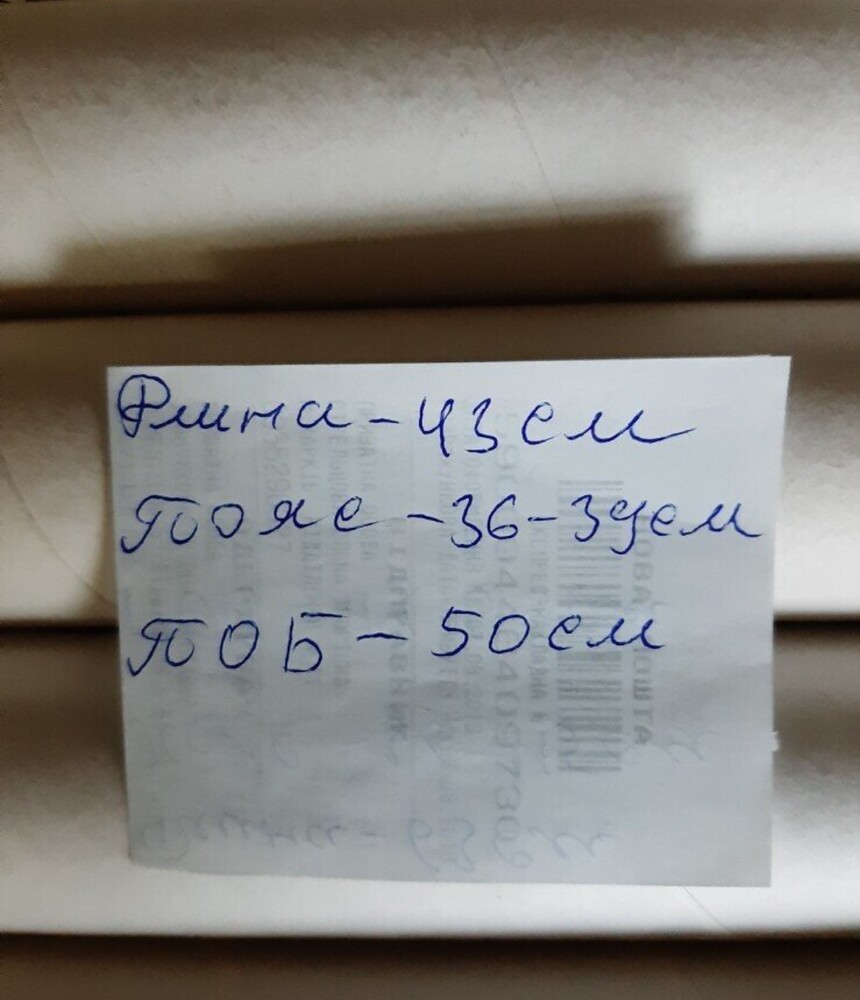 Длина - 43 см
Пояс - 36-39 см
ПОБ - 50 см